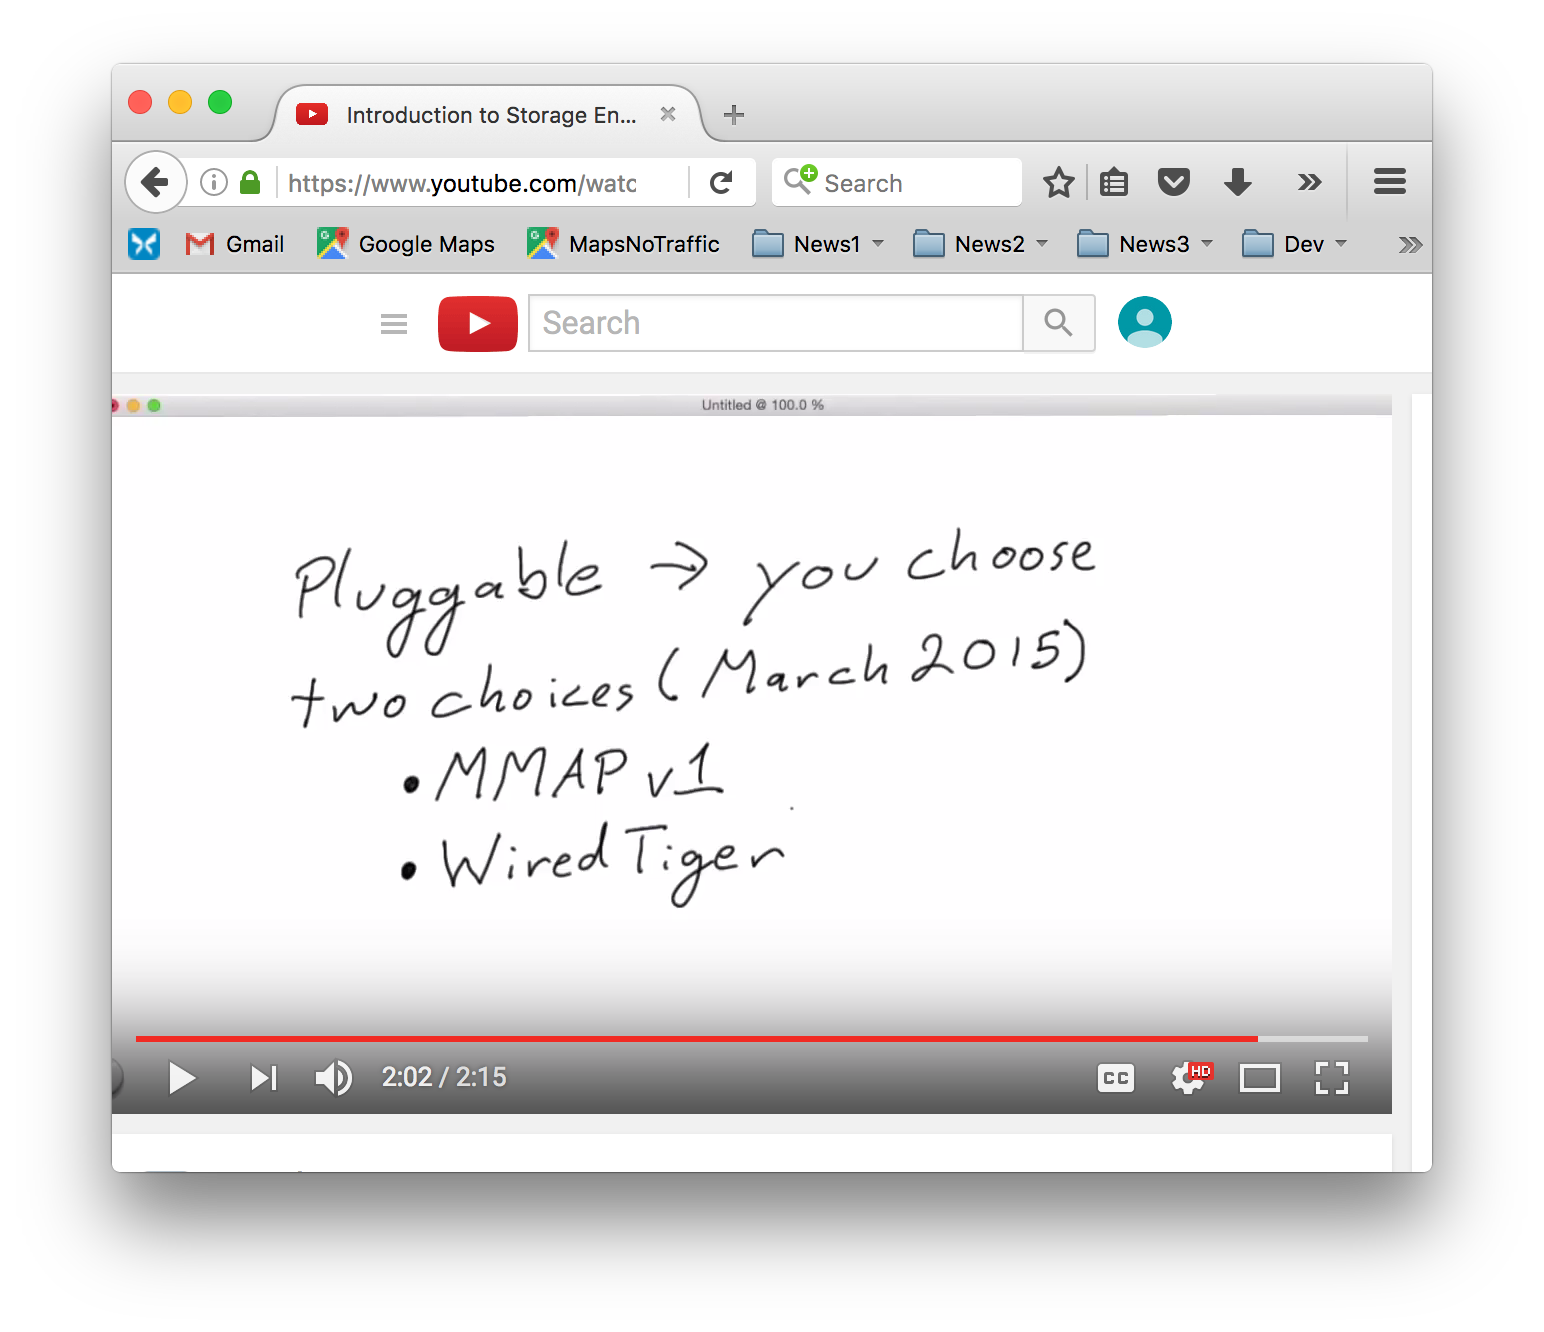 Introduction to Storage En...
https://www.youtube.com/watc
Search
Gmail
Google Maps
MapsNoTraffic
News1
News2
News3
Dev
Search
Untitled @ 100.0 %
Pluggable → you choose
two choices (March 2015)
• MMAP v1
• WiredTiger
2:02 / 2:15
CC
HD